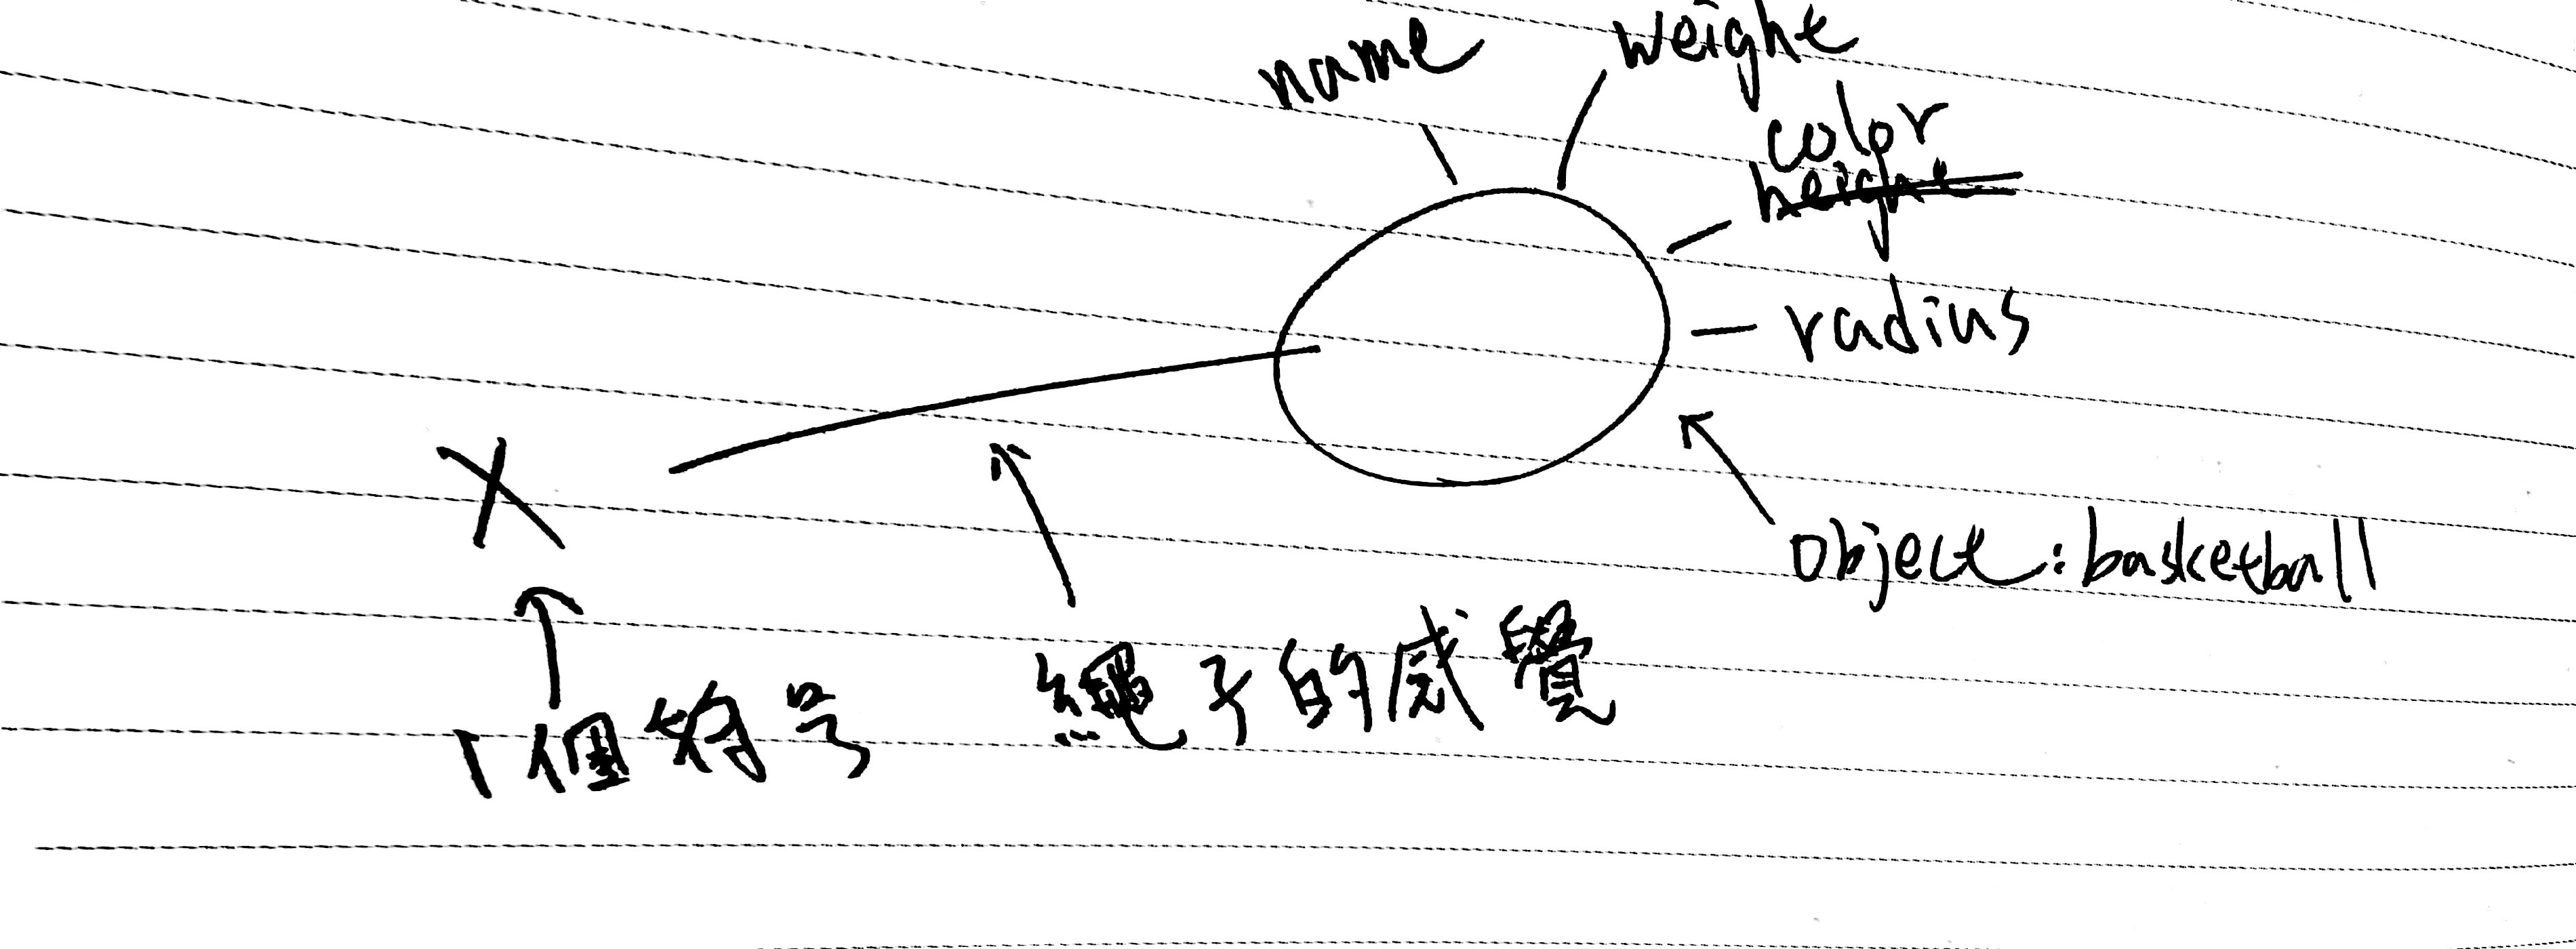 name
weight
color
height
radius
X
object: basketball
1個符号
繩子的感覺